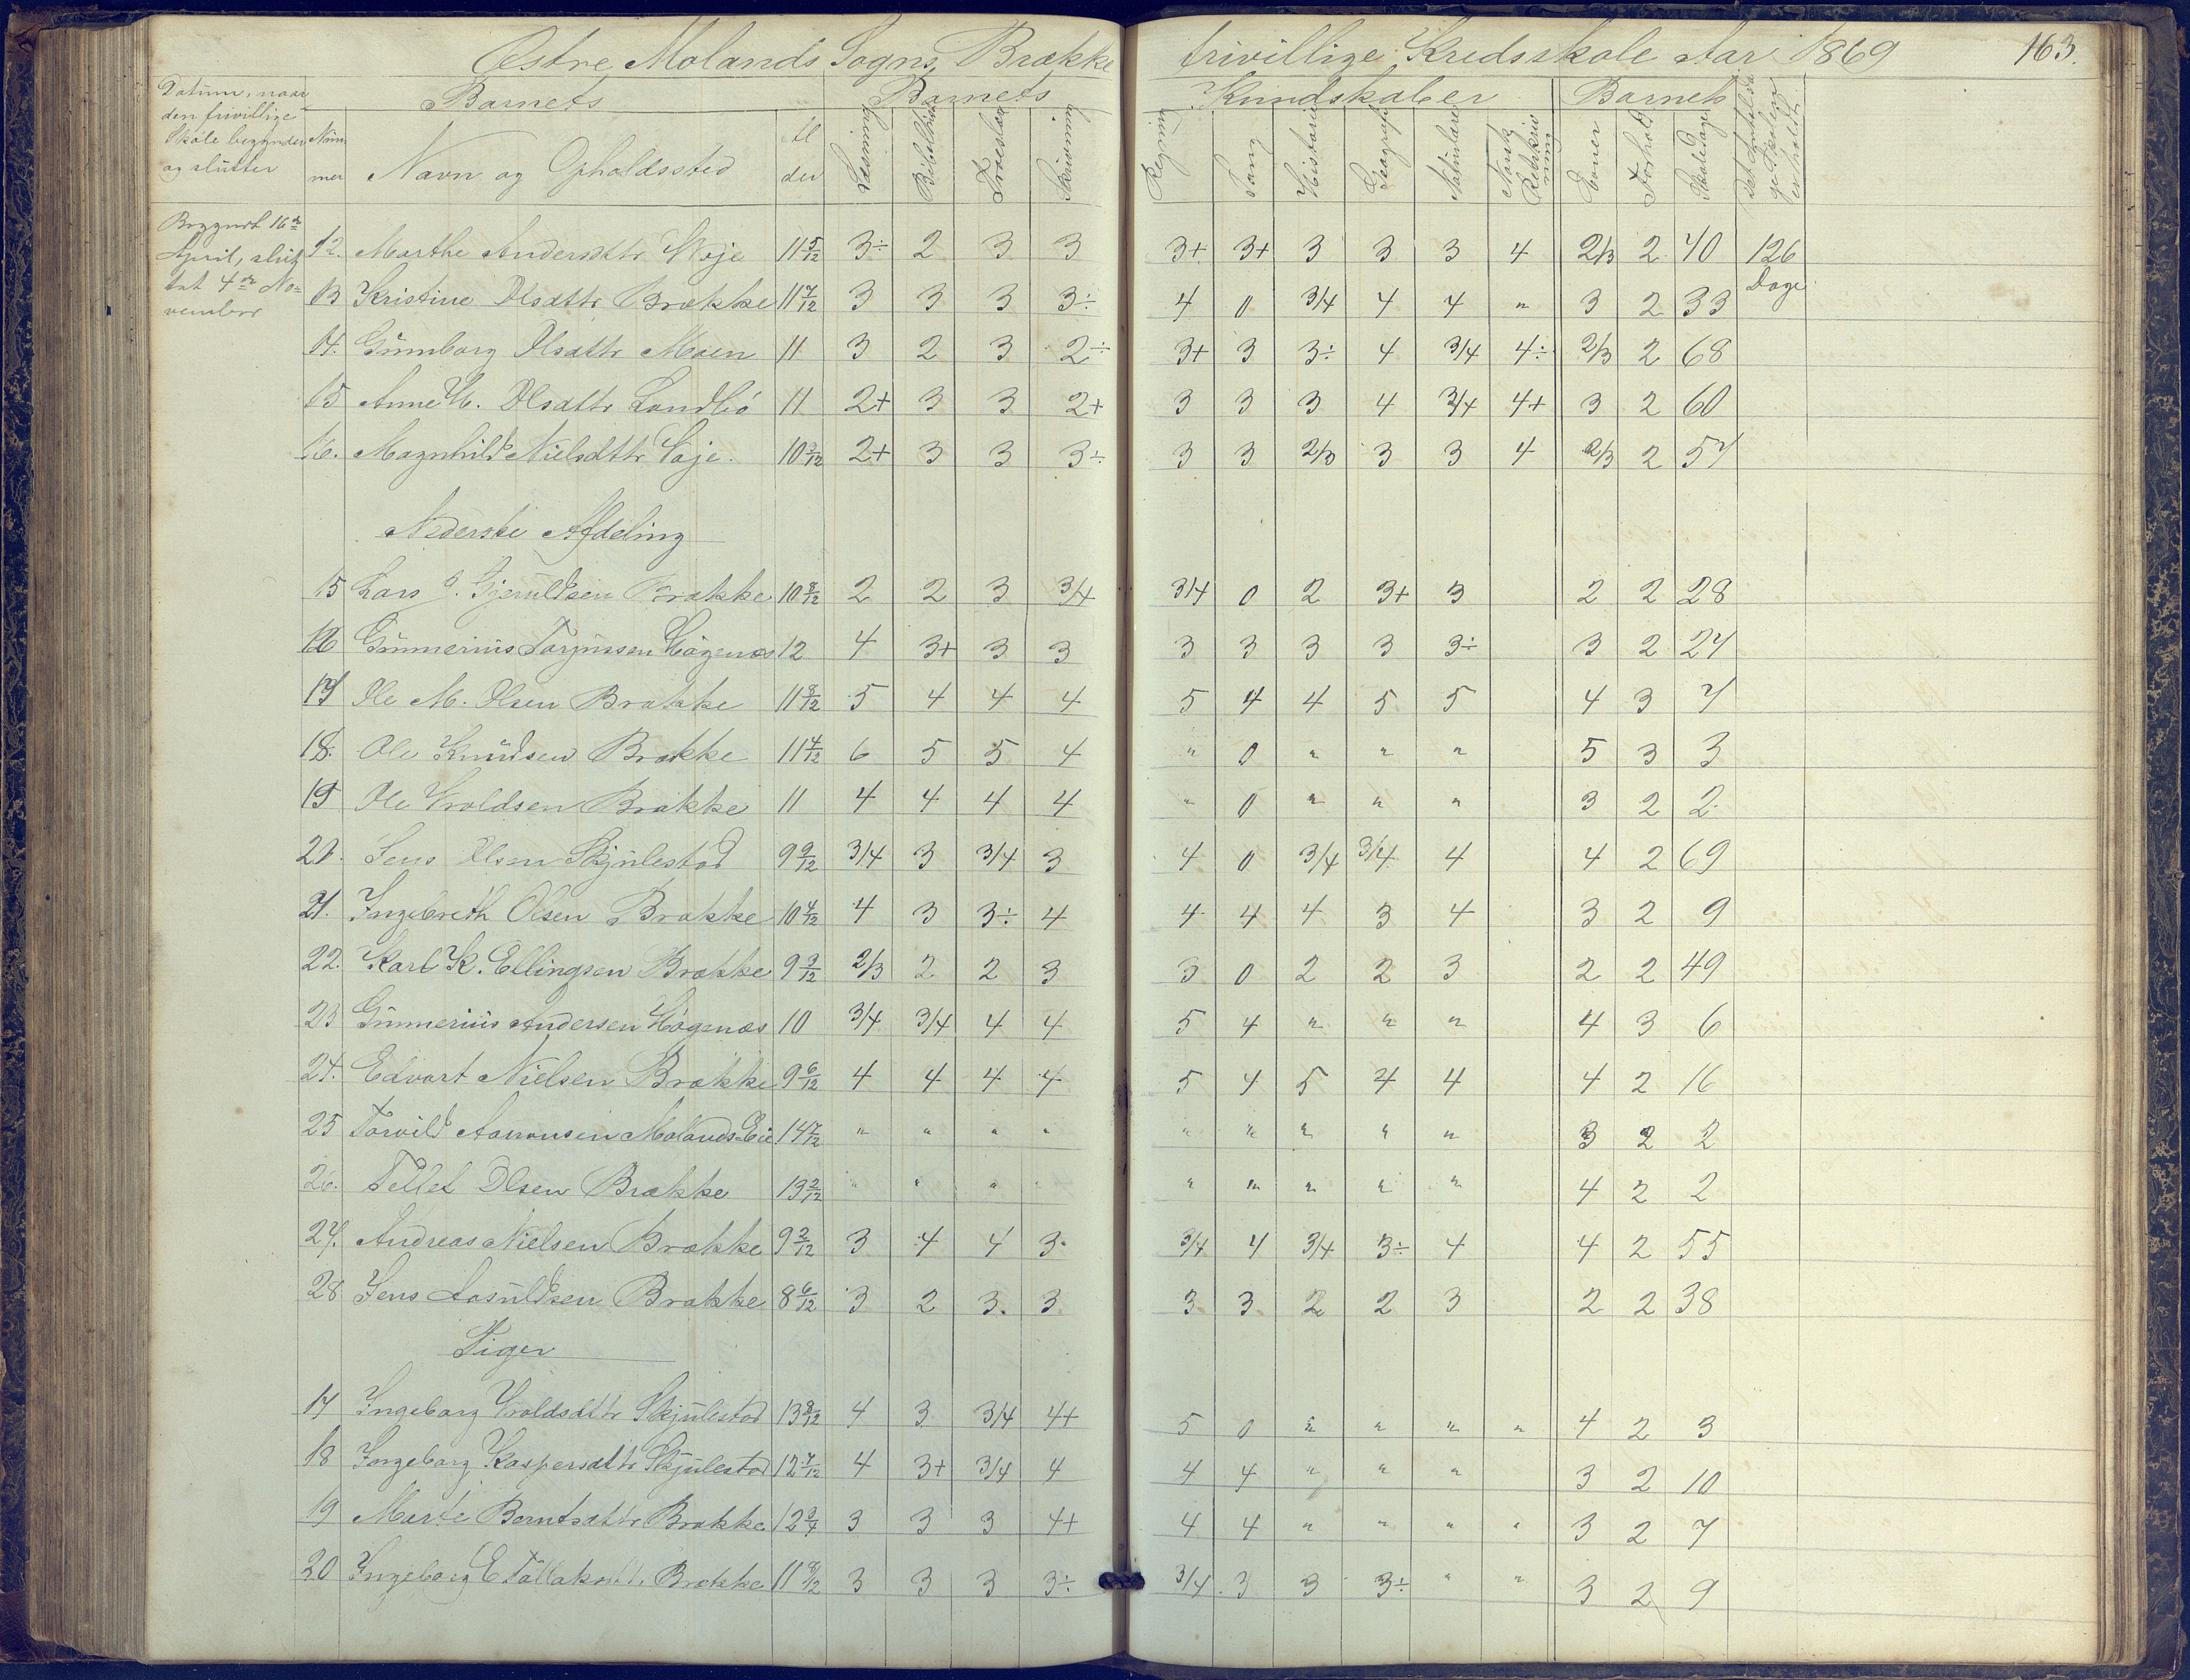 Østre Molands Sogns Brække frivillige Kredsskole Aar 1869 163.
Datum, naar den frivillige Skole begynder og slutter
Barnets Barnets Kundskaber Barnets
Num mer Navn og Opholdssted Al der Læsning Bibelhist Troeslær Skrivning Regning Sang Historie Geografi Naturlære Norsk Retskrivning Evner Forhold Skoledage Det Antal Dage Skolen er holdt
Begyndt 16de
April, slut
tet 4de No=
vember
12. Marthe Andersdttr Woje 11 5/12 3÷ 2 3 3 3+ 3+ 3 3 3 4 2/3 2 40 126 Dage
13 Kristine Olsdttr Brække 11 7/12 3 3 3 3÷ 4 0 3/4 4 4 " 3 2 33
14. Gunnborg Olsdttr Moen 11 3 2 3 2÷ 3+ 3 3÷ 4 3/4 4÷ 2/3 2 68
15 Anne M. Olsdttr Landbö 11 2+ 3 3 2+ 3 3 3 4 3/4 4+ 3 2 60
16. Magnhild Nielsdttr Woje. 10 3/12 2+ 3 3 3÷ 3 3 2/3 3 3 4 2/3 2 57
Nederste Afdeling
15 Lars G. Gjeruldsen Brække 10 8/12 2 2 3 3/4 3/4 0 2 3+ 3 2 2 28
16 Gunnerius Torjussen Hagenæs 12 4 3+ 3 3 3 3 3 3 3÷ 3 2 27
17 Ole M. Olsen Brække 11 8/12 5 4 4 4 5 4 4 5 5 4 3 7
18. Ole Knudsen Brække 11 4/12 6 5 5 4 " 0 " " " 5 3 3
19 Ole Wroldsen Brække 11 4 4 4 4 " 0 " " " 3 2 2
20. Jens Olsen Skjulestad 9 9/12 3/4 3 3/4 3 4 0 3/4 3/4 4 4 2 69
21. Ingebreth Olsen Brække 10 4/12 4 3 3÷ 4 4 4 4 3 4 3 2 9
22. Karl K. Ellingsen Brække 9 3/12 2/3 2 2 3 3 0 2 2 3 2 2 49
23 Gunnerius Andersen Hagenæs 10 3/4 3/4 4 4 5 4 " " " 4 3 6
24. Edvart Nielsen Brække 9 6/12 4 4 4 4 5 4 5 4 4 4 2 16
25 Torvild Aanonsen Molands Eie 14 7/12 " " " " " " " " " 3 2 2
26. Tellef Olsen Brække 13 2/12 " " " " " " " " " 4 2 2
27. Andreas Nielsen Brække 9 2/12 3 4 4 3 3/4 4 3/4 3÷ 4 4 2 55
28 Jens Aasuldsen Brække 8 6/12 3 2 3. 3 3 3 2 2 3 2 2 38
Piger
17 Ingeborg Wroldsdttr Skjulestad 13 8/12 4 3 3/4 4+ 5 0 " " " " 4 2 3
18 Ingeborg Kaspersdttr Skjulestad 12 7/12 4 3+ 3/4 4 4 4 " " " 3 2 10
19 Marte Berntsdttr Brække 12 3/4 3 3 3 4+ 4 4 " " " " 3 2 7
20 Ingeborg E Tallaksdtt. Brække 11 8/12 3 3 3 3÷ 3/4 3 3 3÷ " " 3 2 9